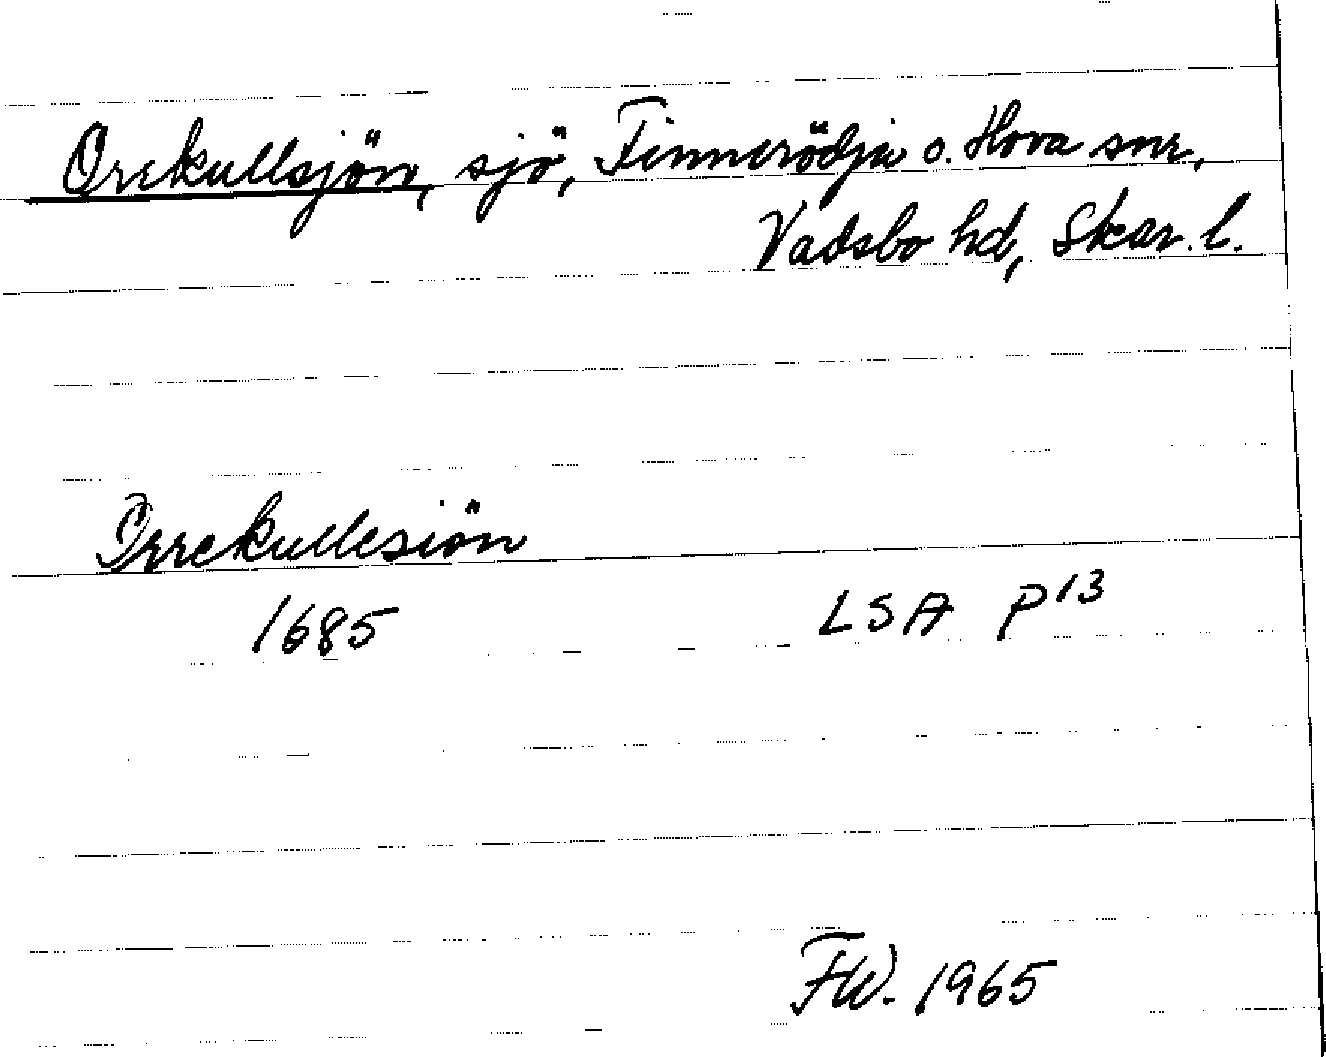 Orrekullsjön, sjö, Finnerödja o. Hova snr,
Vadsbo hd, Skar. l.
Orrekullesiön
1685 LSA P 13
FW. 1965